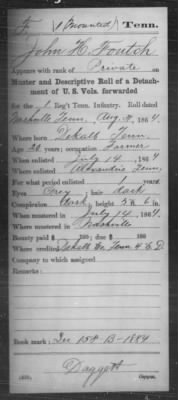 F 1 (Mounted) Tenn.
John H. Foutch
Appears with rank of Private on
Muster and Descriptive Roll of a Detach-
ment of U. S. Vols. forwarded
for the 1 Reg't Tenn. Infantry. Roll dated
Nashville Tenn, Aug 186 4.
Where born Dekalb Tenn
Age 20 years; occupation Farmer
When enlisted July 14, 186 4
Where enlisted Alexandria Tenn,
For what period enlisted 1 years.
Eyes Grey; hair dark
Complexion dark; height 5 ft. 6 in.
When mustered in July 14, 186 4.
Where mustered in Nashville
Bounty paid $ 100; due $ 100
Where credited Dekalb Co. Tenn 4 C.D.
Company to which assigned
Remarks:
Book mark: 15 B-1884
Daggett
Copyist.